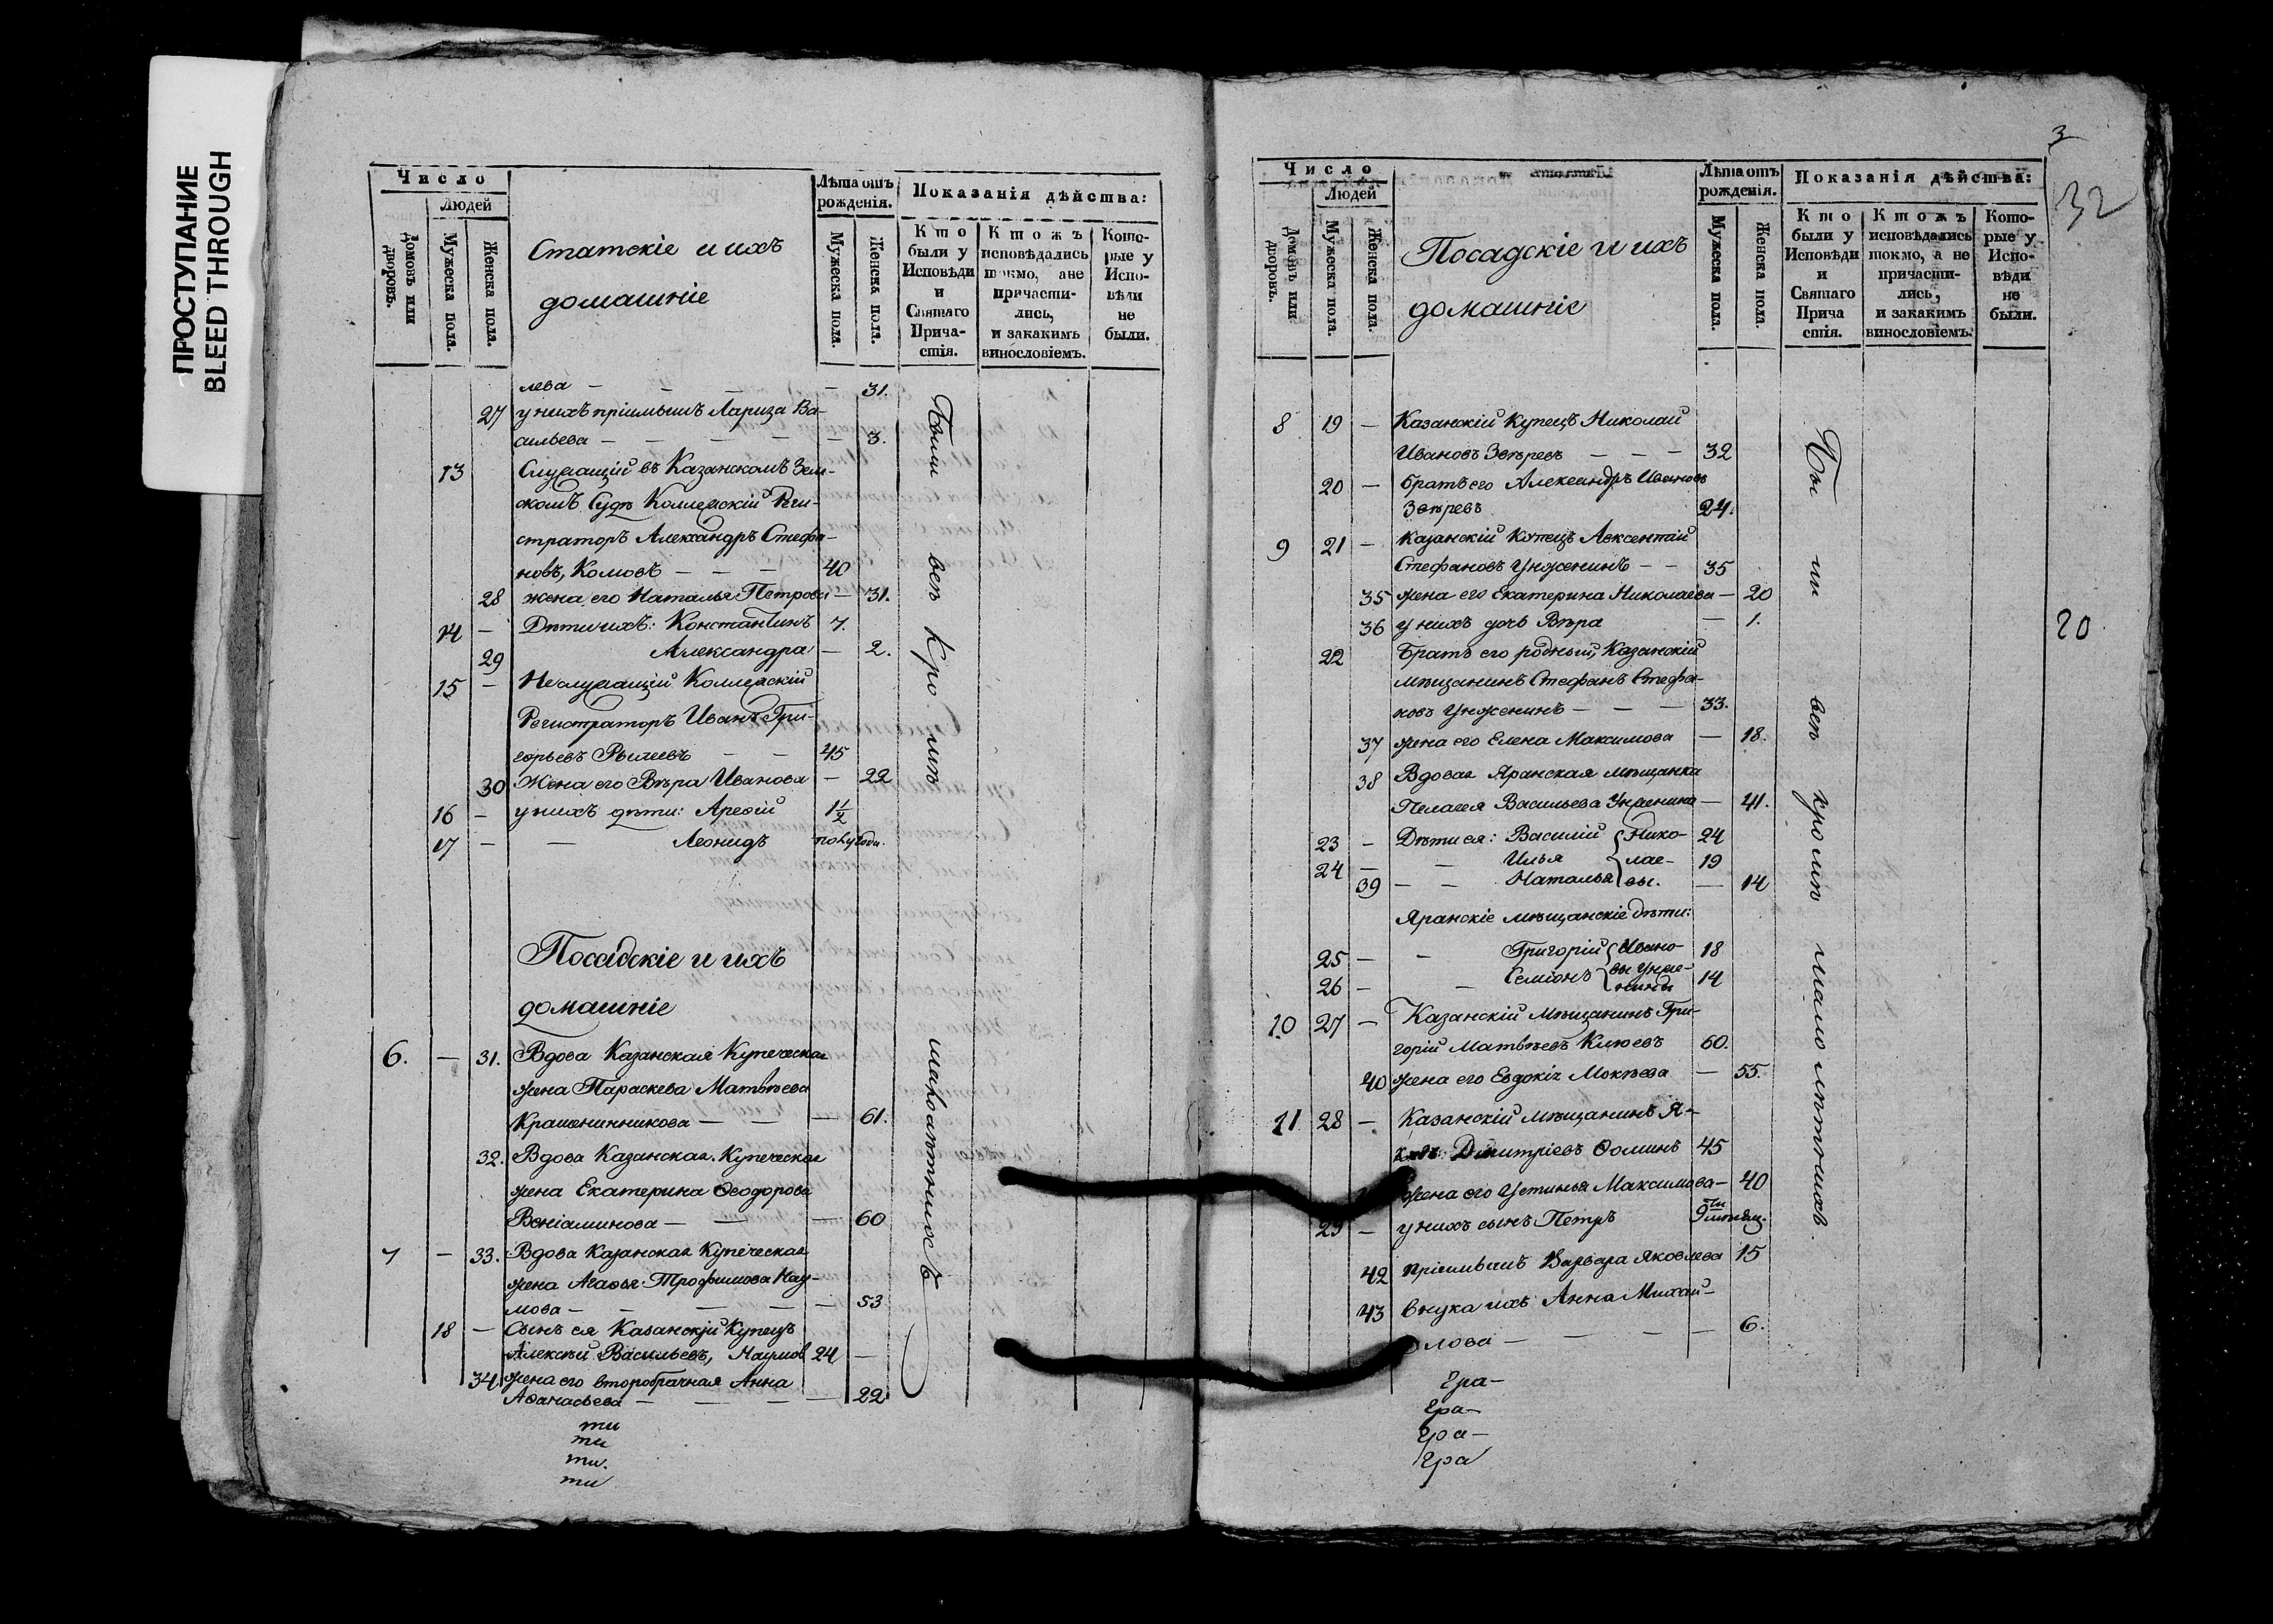 ПРОСТУПАНИЕ
BLEED THROUGH
Число
Людей
Домовъ или дворовъ.
Мужеска пола.
Женска пола.
Статскіе и ихъ
домашніе
Лѣта отъ рожденія.
Мужеска пола.
Женска пола.
Показанія дѣйства:
Кто были у Исповѣди и Святаго Причастія.
Ктожъ исповѣдались токмо, а не причастились, и закакимъ винословіемъ.
Которые у Исповѣди не были.
лева — — — — 31.
27 у нихъ пріимышъ Лариза Ва-
сильева — — — — 3.
13 Служащій въ Казанскомъ Зем-
скомъ Судѣ Коллежскій Реги-
страторъ Александръ Стефа-
новъ, Комовъ — — — 40
28 жена его Наталья Петрова — 31.
14 — Дѣти ихъ: Константинъ 7.
29 Александра — 2.
15 — Неслужащій Коллежскій
Регистраторъ Иванъ Гри-
горьевъ Рылеевъ — — 45
30 Жена его Вѣра Иванова — 22
16 — у нихъ дѣти: Арефій 1 1/2
17 — — Леонидъ полугода.
Посадскіе и ихъ
домашніе
6. — 31. Вдова Казанская Купеческая
жена Параскева Матвѣева
Крашенинникова — — — 61.
32. Вдова Казанская Купеческая
жена Екатерина Ѳеодорова
Веніаминова — — — 60
7 — 33. Вдова Казанская Купеческая
жена Агаѳья Трофимова Нау-
мова — — — — — 53
18 — Сынъ ея Казанскій Купецъ
Алексѣй Васильевъ, Наумов 24 —
34. жена его второбрачная Анна
Аѳанасьева — — — — 22.
ти
ти
ти.
ти
Были всѣ кромѣ малолѣтнихъ
3
32
Число
Людей
Домовъ или дворовъ.
Мужеска пола.
Женска пола.
Посадскіе и ихъ
домашніе
Лѣта отъ рожденія.
Мужеска пола.
Женска пола.
Показанія дѣйства:
Кто были у Исповѣди и Святаго Причастія.
Ктожъ исповѣдались токмо, а не причастились, и закакимъ винословіемъ.
Которые у Исповѣди не были.
8 19 — Казанскій Купецъ Николай
Ивановъ Звѣревъ — — — 32
20 — братъ его Александръ Ивановъ
Звѣревъ 24.
9 21 — Казанскій Купецъ Авксентій
Стефановъ Унженинъ — — 35
35 жена его Екатерина Николаева — 20
36 у нихъ дочь Вѣра — 1.
20
22 Братъ его родный, Казанскій
мѣщанинъ Стефанъ Стефа-
новъ Унженинъ — — — 33.
37 жена его Елена Максимова — 18.
38 Вдова Яранская мѣщанка
Пелагея Васильева Унженина — 41.
23 — Дѣти ея: Василій { Нико- 24
24 — — Илья { лае- 19
39 — — Наталья { вы. — 14
Яранскіе мѣщанскіе дѣти:
25 — — Григорій { Ивано- 18
26 — — Семіонъ { вы Унже- нины 14
10 27 — Казанскій мѣщанинъ Гри-
горій Матвѣевъ Клюевъ 60.
40 жена его Евдокія Мокѣева — 55.
11 28 — Казанскій мѣщанинъ Я-
Дмитріевъ Ѳоминъ 45
жена его Устинья Максимова — 40
29 — у нихъ сынъ Петръ 9ти мѣсяц.
42 пріимышъ Варвара Яковлева 15
43 внука ихъ Анна Михай-
лова — — — — 6.
Гра-
Гра-
Гра-
Гра
Бы ли всѣ кромѣ малолѣтнихъ.